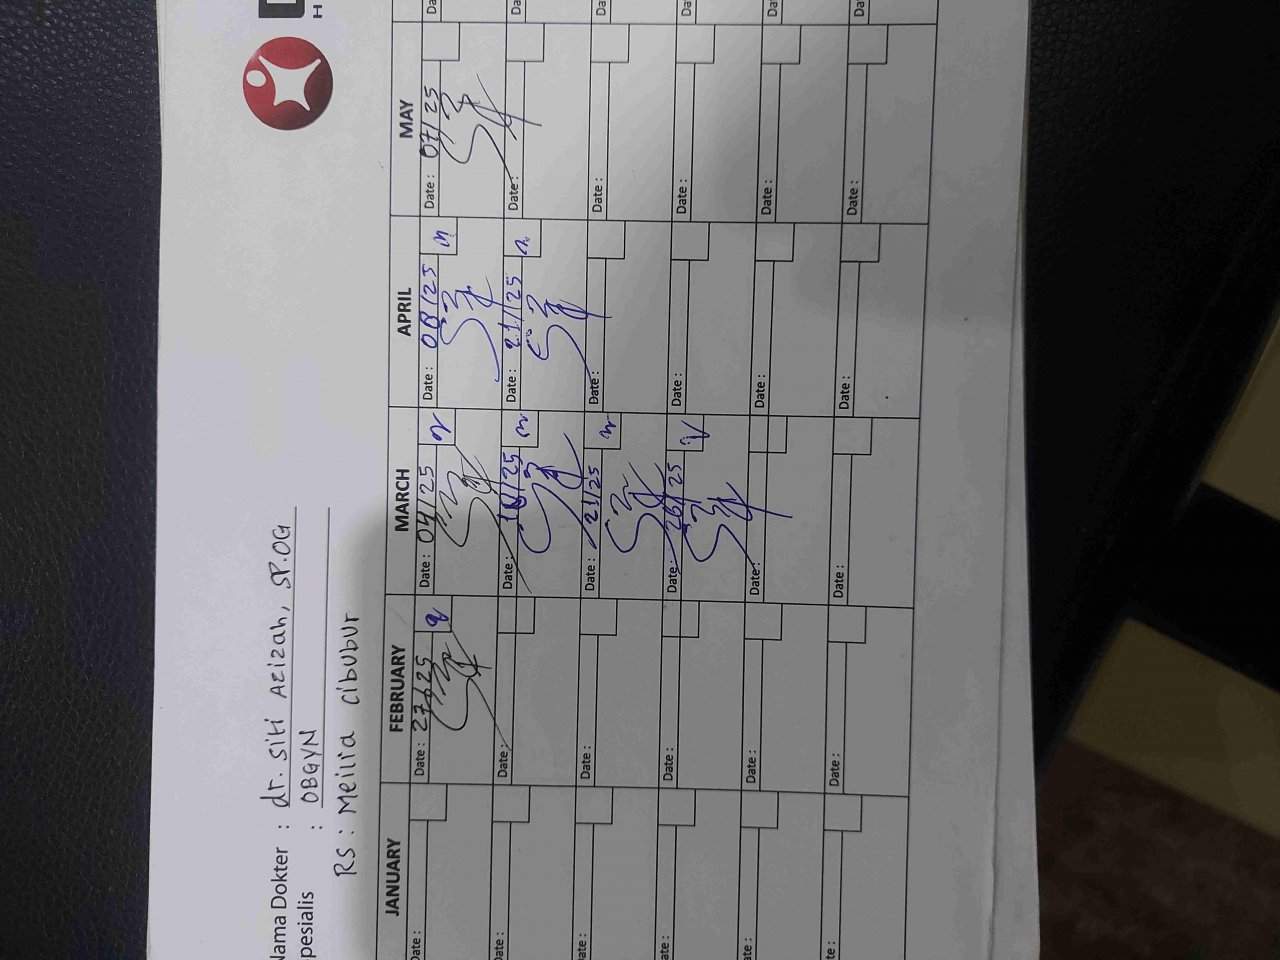 Nama Dokter : dr. Siti Azizah, SP.OG
Spesialis : OBGYN
RS : Meilia Cibubur
JANUARY FEBRUARY MARCH APRIL MAY
Date : Date : 27/2 25 Date : 04/25 Date : 08/25 Date : 07/25
Date : Date : Date : 18/25 Date : 21/25 Date :
Date : Date : Date : 21/25 Date : Date :
Date : Date : Date : 26/25 Date : Date :
Date : Date : Date : Date : Date :
Date : Date : Date : Date : Date :